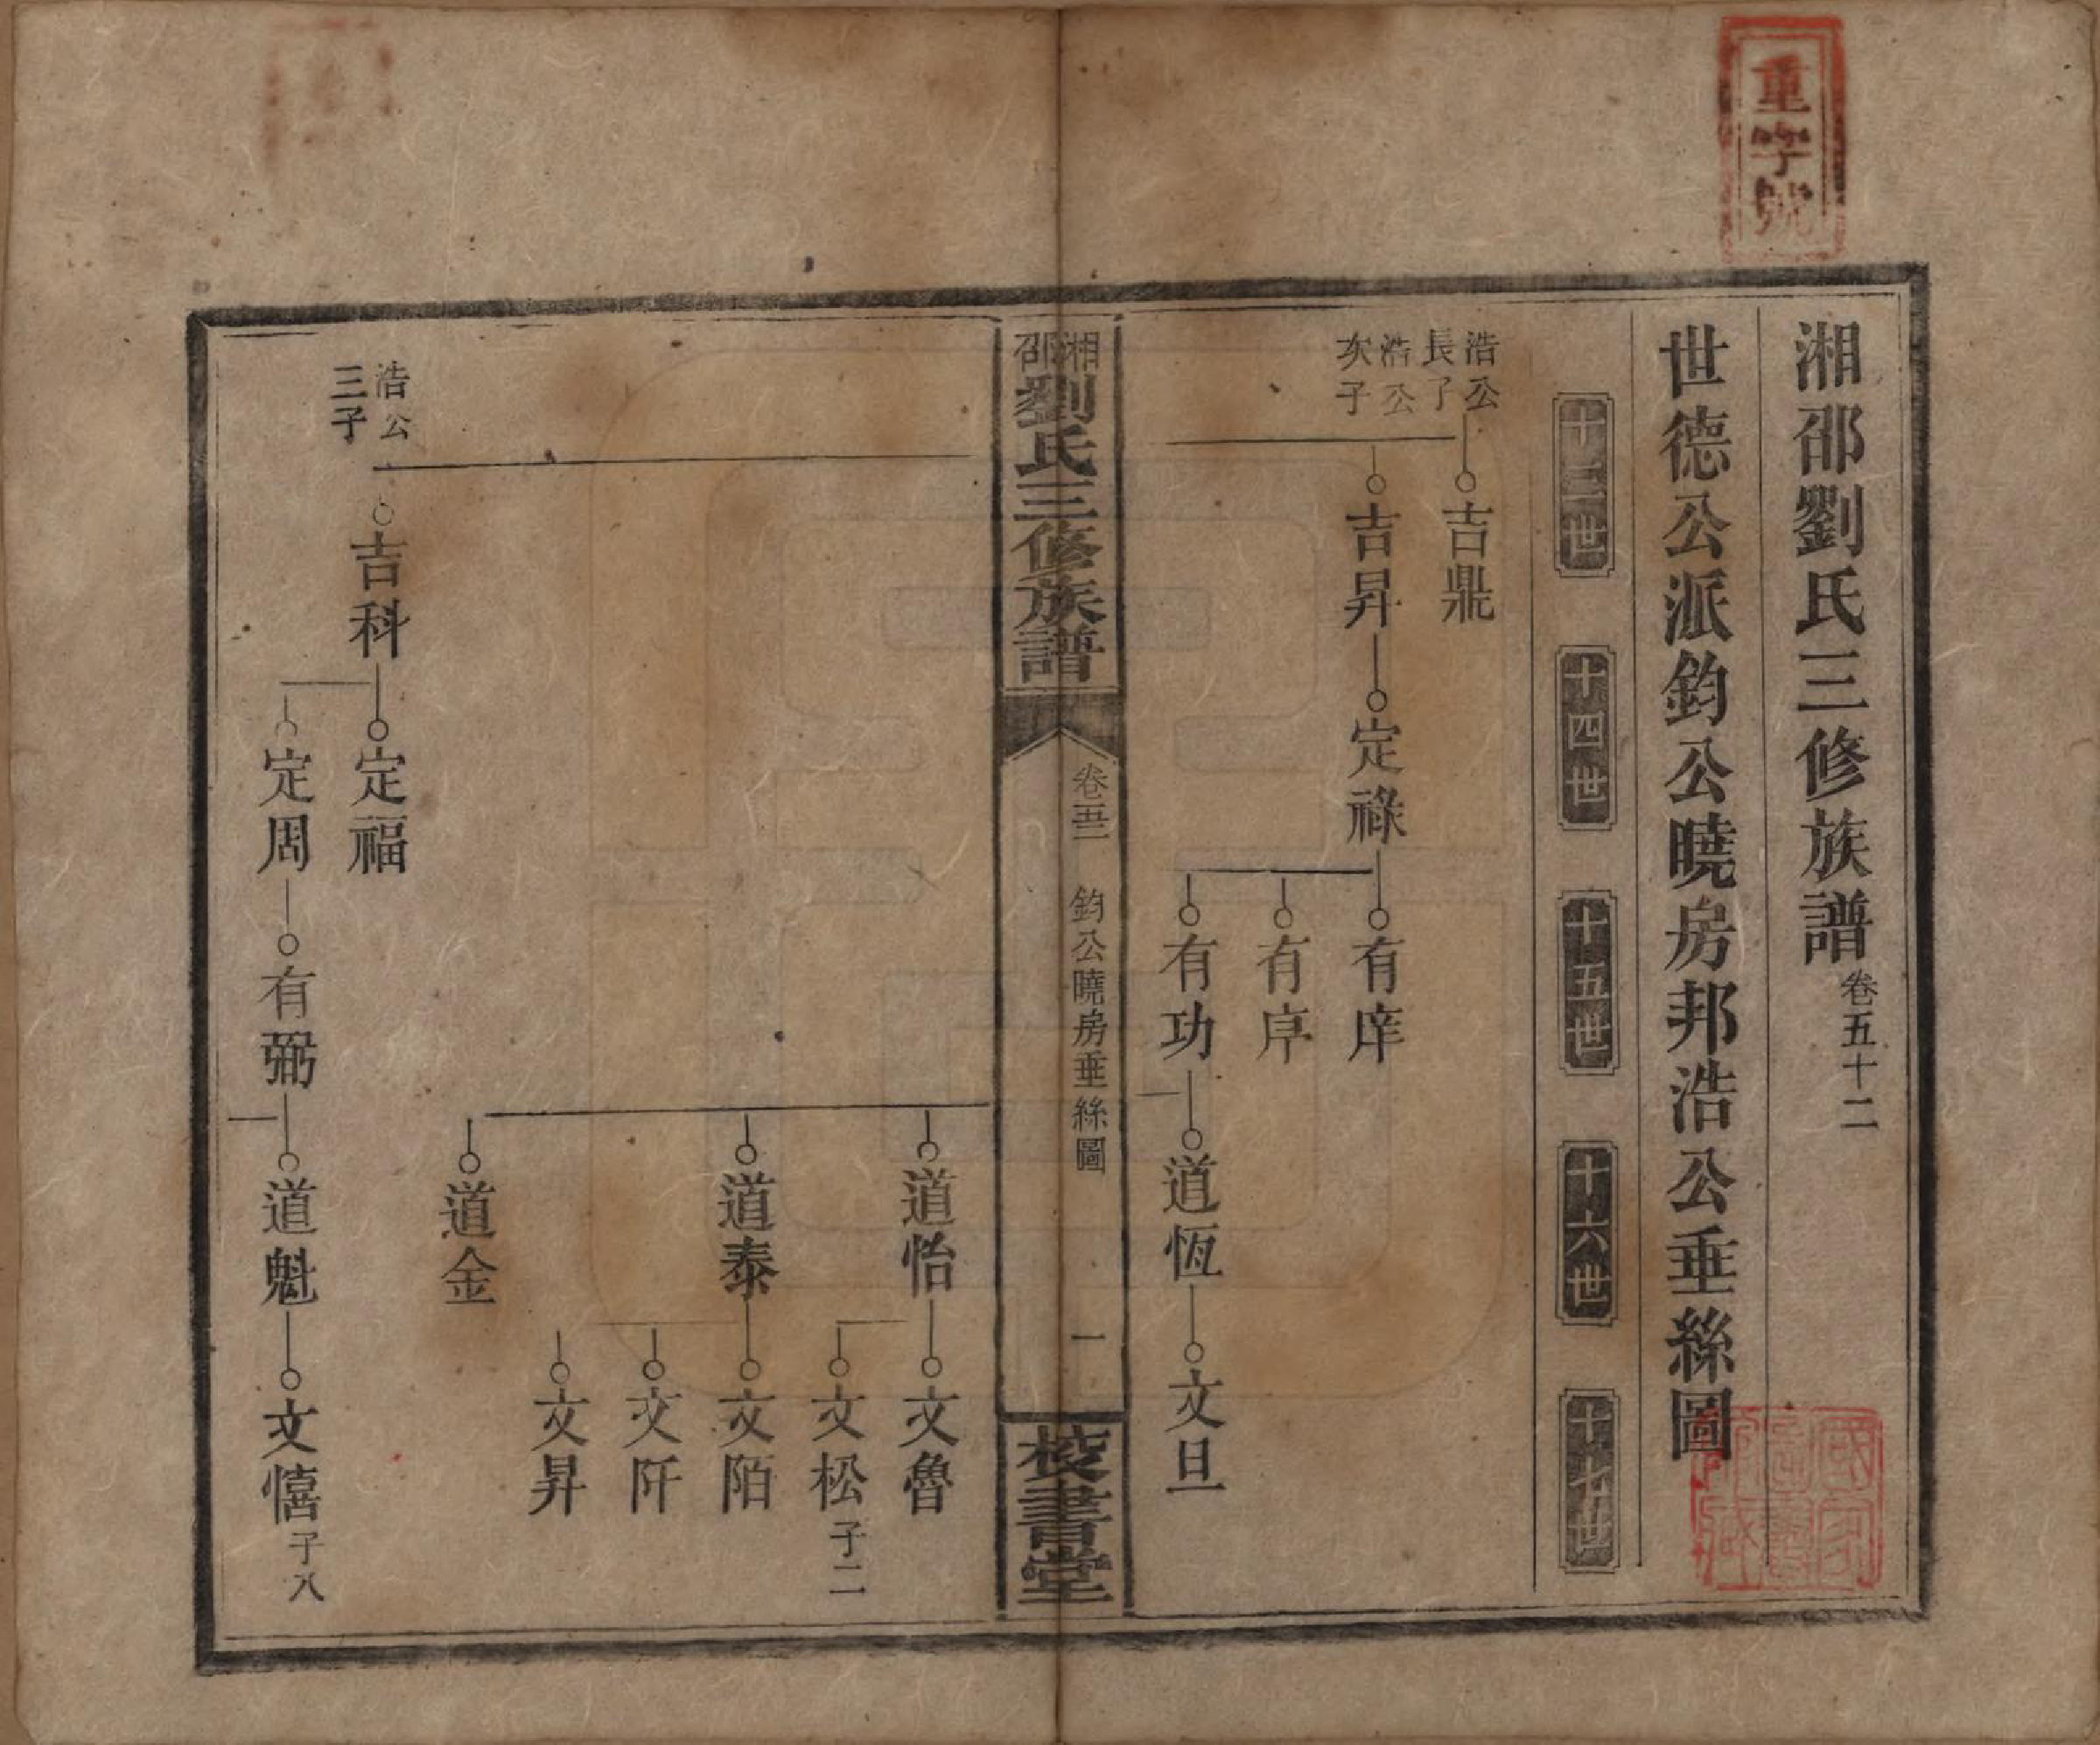 重字號
湘邵劉氏三修族譜 卷五十二
世德公派鈞公曉房邦浩公垂絲圖
十三世 十四世 十五世 十六世 十七世
浩公長子 吉鼎
浩公次子 吉昇 定祿 有庠
有庠
有功 道恆 文旦
湘邵劉氏三修族譜 卷五二 鈞公曉房垂絲圖 一 校書堂
道怡 文魯
文松 子二
道泰 文陌
文阡
文昇
道金
浩公三子 吉科 定福
定周 有弼 道魁 文憘 子八